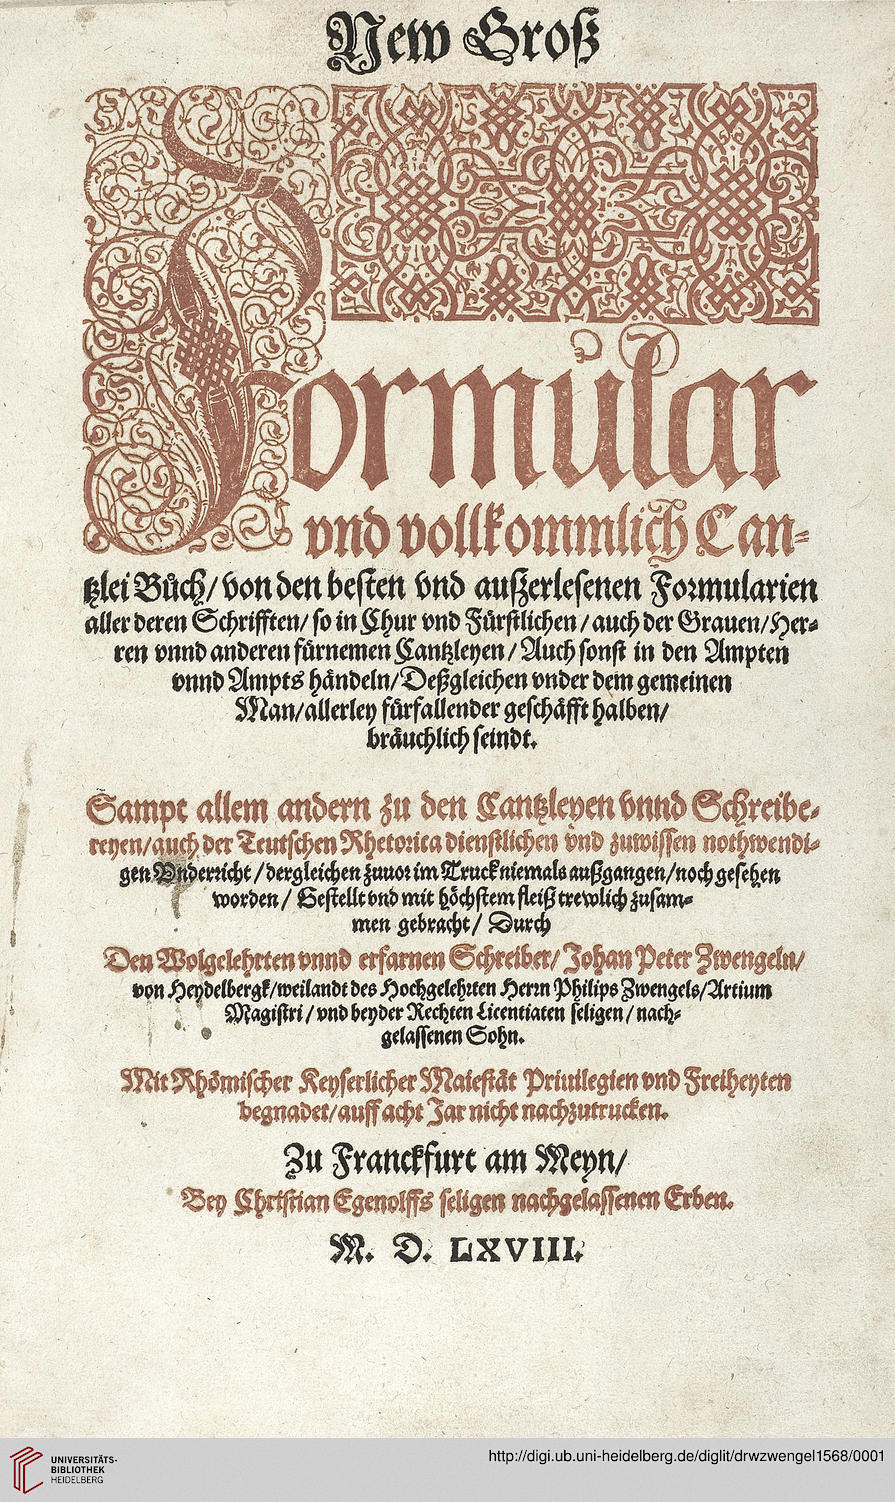 New Groß
Formůlar
vnd vollkommlich Can-
tzlei Bůch/ von den besten vnd außerlesenen Formularien
aller deren Schrifften/ so in Chur vnd Fürstlichen/ auch der Grauen/ Her-
ren vnnd anderen fürnemen Cantzleyen/ Auch sonst in den Ampten
vnnd Ampts händeln/ Deßgleichen vnder dem gemeinen
Man/ allerley fürfallender geschäfft halben/
bräuchlich seindt.
Sampt allem andern zu den Cantzleyen vnnd Schreibe-
reyen/ auch der Teutschen Rhetorica dienstlichen vnd zuwissen nothwendi-
gen Vnderricht/ dergleichen zuuor im Truck niemals außgangen/ noch gesehen
worden/ Gestellt vnd mit höchstem fleiß trewlich zusam-
men gebracht/ Durch
Den Wolgelehrten vnnd erfarnen Schreiber/ Johan Peter Zwengeln/
von Heydelbergk/ weilandt des Hochgelehrten Herrn Philips Zwengels/ Artium
Magistri/ vnd beyder Rechten Licentiaten seligen/ nach-
gelassenen Sohn.
Mit Rhömischer Keyserlicher Maiestät Priuilegien vnd Freiheyten
begnadet/ auff acht Jar nicht nachzutrucken.
Zu Franckfurt am Meyn/
Bey Christian Egenolffs seligen nachgelassenen Erben.
M. D. LXVIII.
UNIVERSITÄTS-
BIBLIOTHEK
HEIDELBERG
http://digi.ub.uni-heidelberg.de/diglit/drwzwengel1568/0001